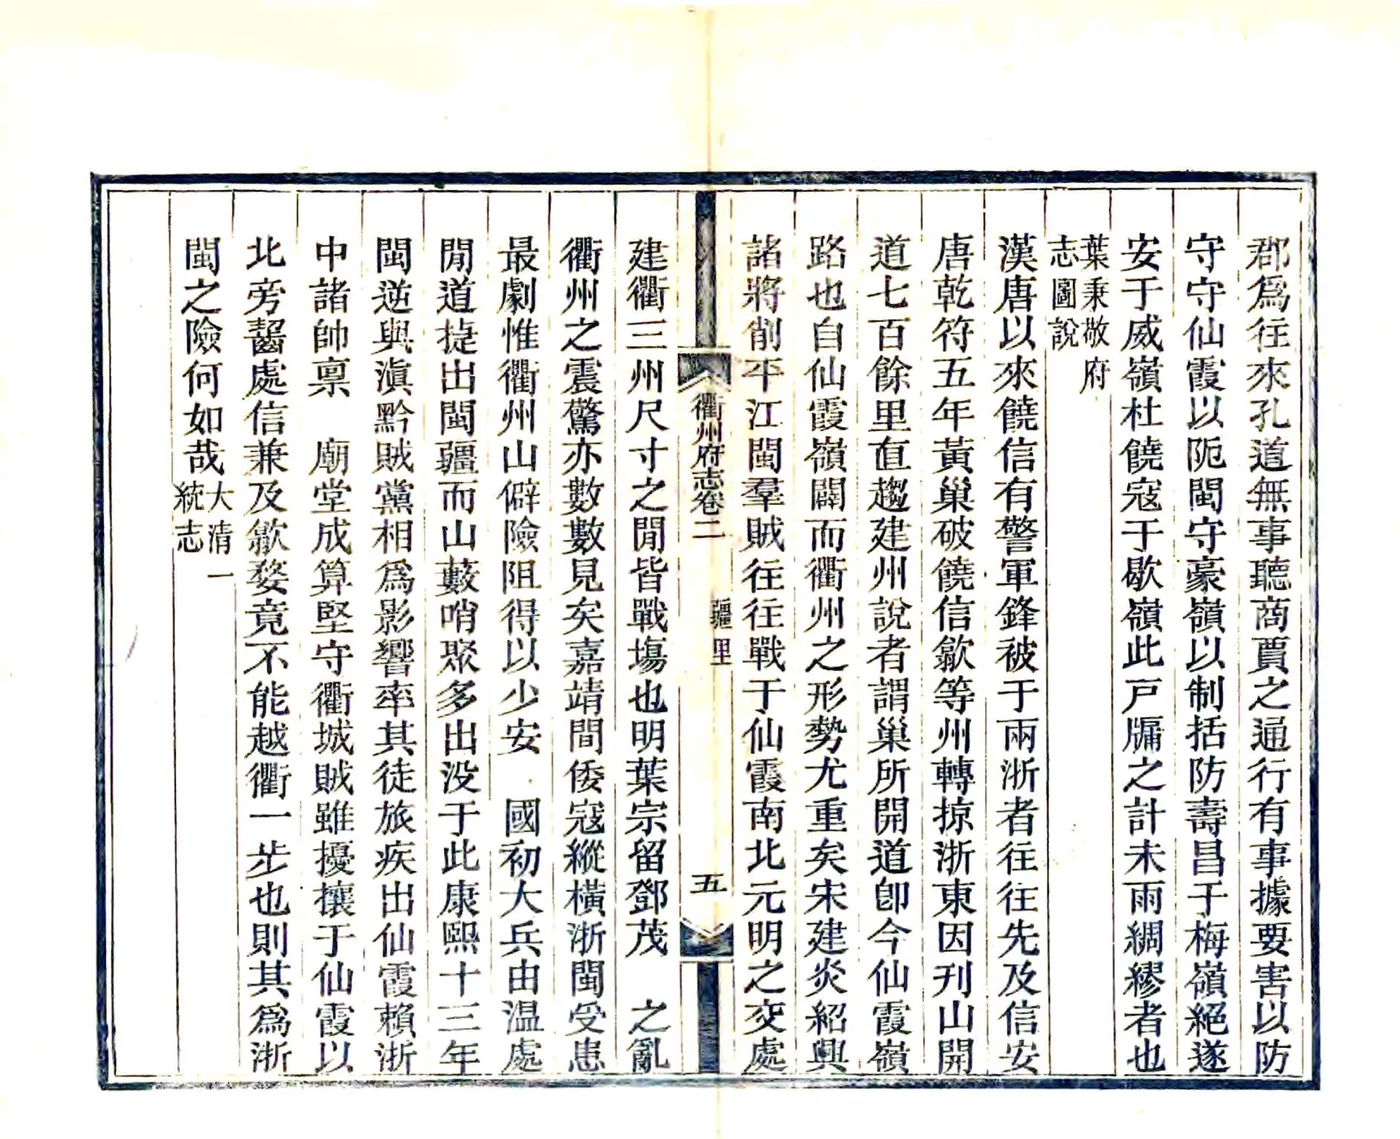 郡爲往來孔道無事聽商賈之通行有事據要害以防
守守仙霞以阨閩守豪嶺以制括防壽昌于梅嶺絕遂
安于威嶺杜饒寇于歇嶺此戸牖之計未雨綢繆者也
葉秉敬府
志圖說
漢唐以來饒信有警軍鋒被于兩浙者往往先及信安
唐乾符五年黃巢破饒信歙等州轉掠浙東因刋山開
道七百餘里直趨建州說者謂巢所開道卽今仙霞嶺
路也自仙霞嶺闢而衢州之形勢尤重矣宋建炎紹興
諸將削平江閩羣賊往往戰于仙霞南北元明之交處
衢州府志卷二
疆里
五
建衢三州尺寸之閒皆戰塲也明葉宗留鄧茂 之亂
衢州之震驚亦數數見矣嘉靖間倭寇縱橫浙閩受患
最劇惟衢州山僻險阻得以少安 國初大兵由温處
閒道捷出閩疆而山藪哨聚多出没于此康熙十三年
閩逆與滇黔賊黨相爲影響率其徒旅疾出仙霞賴浙
中諸帥禀 廟堂成算堅守衢城賊雖擾攘于仙霞以
北旁齧處信兼及歙婺竟不能越衢一步也則其爲浙
閩之險何如哉
大清一
統志